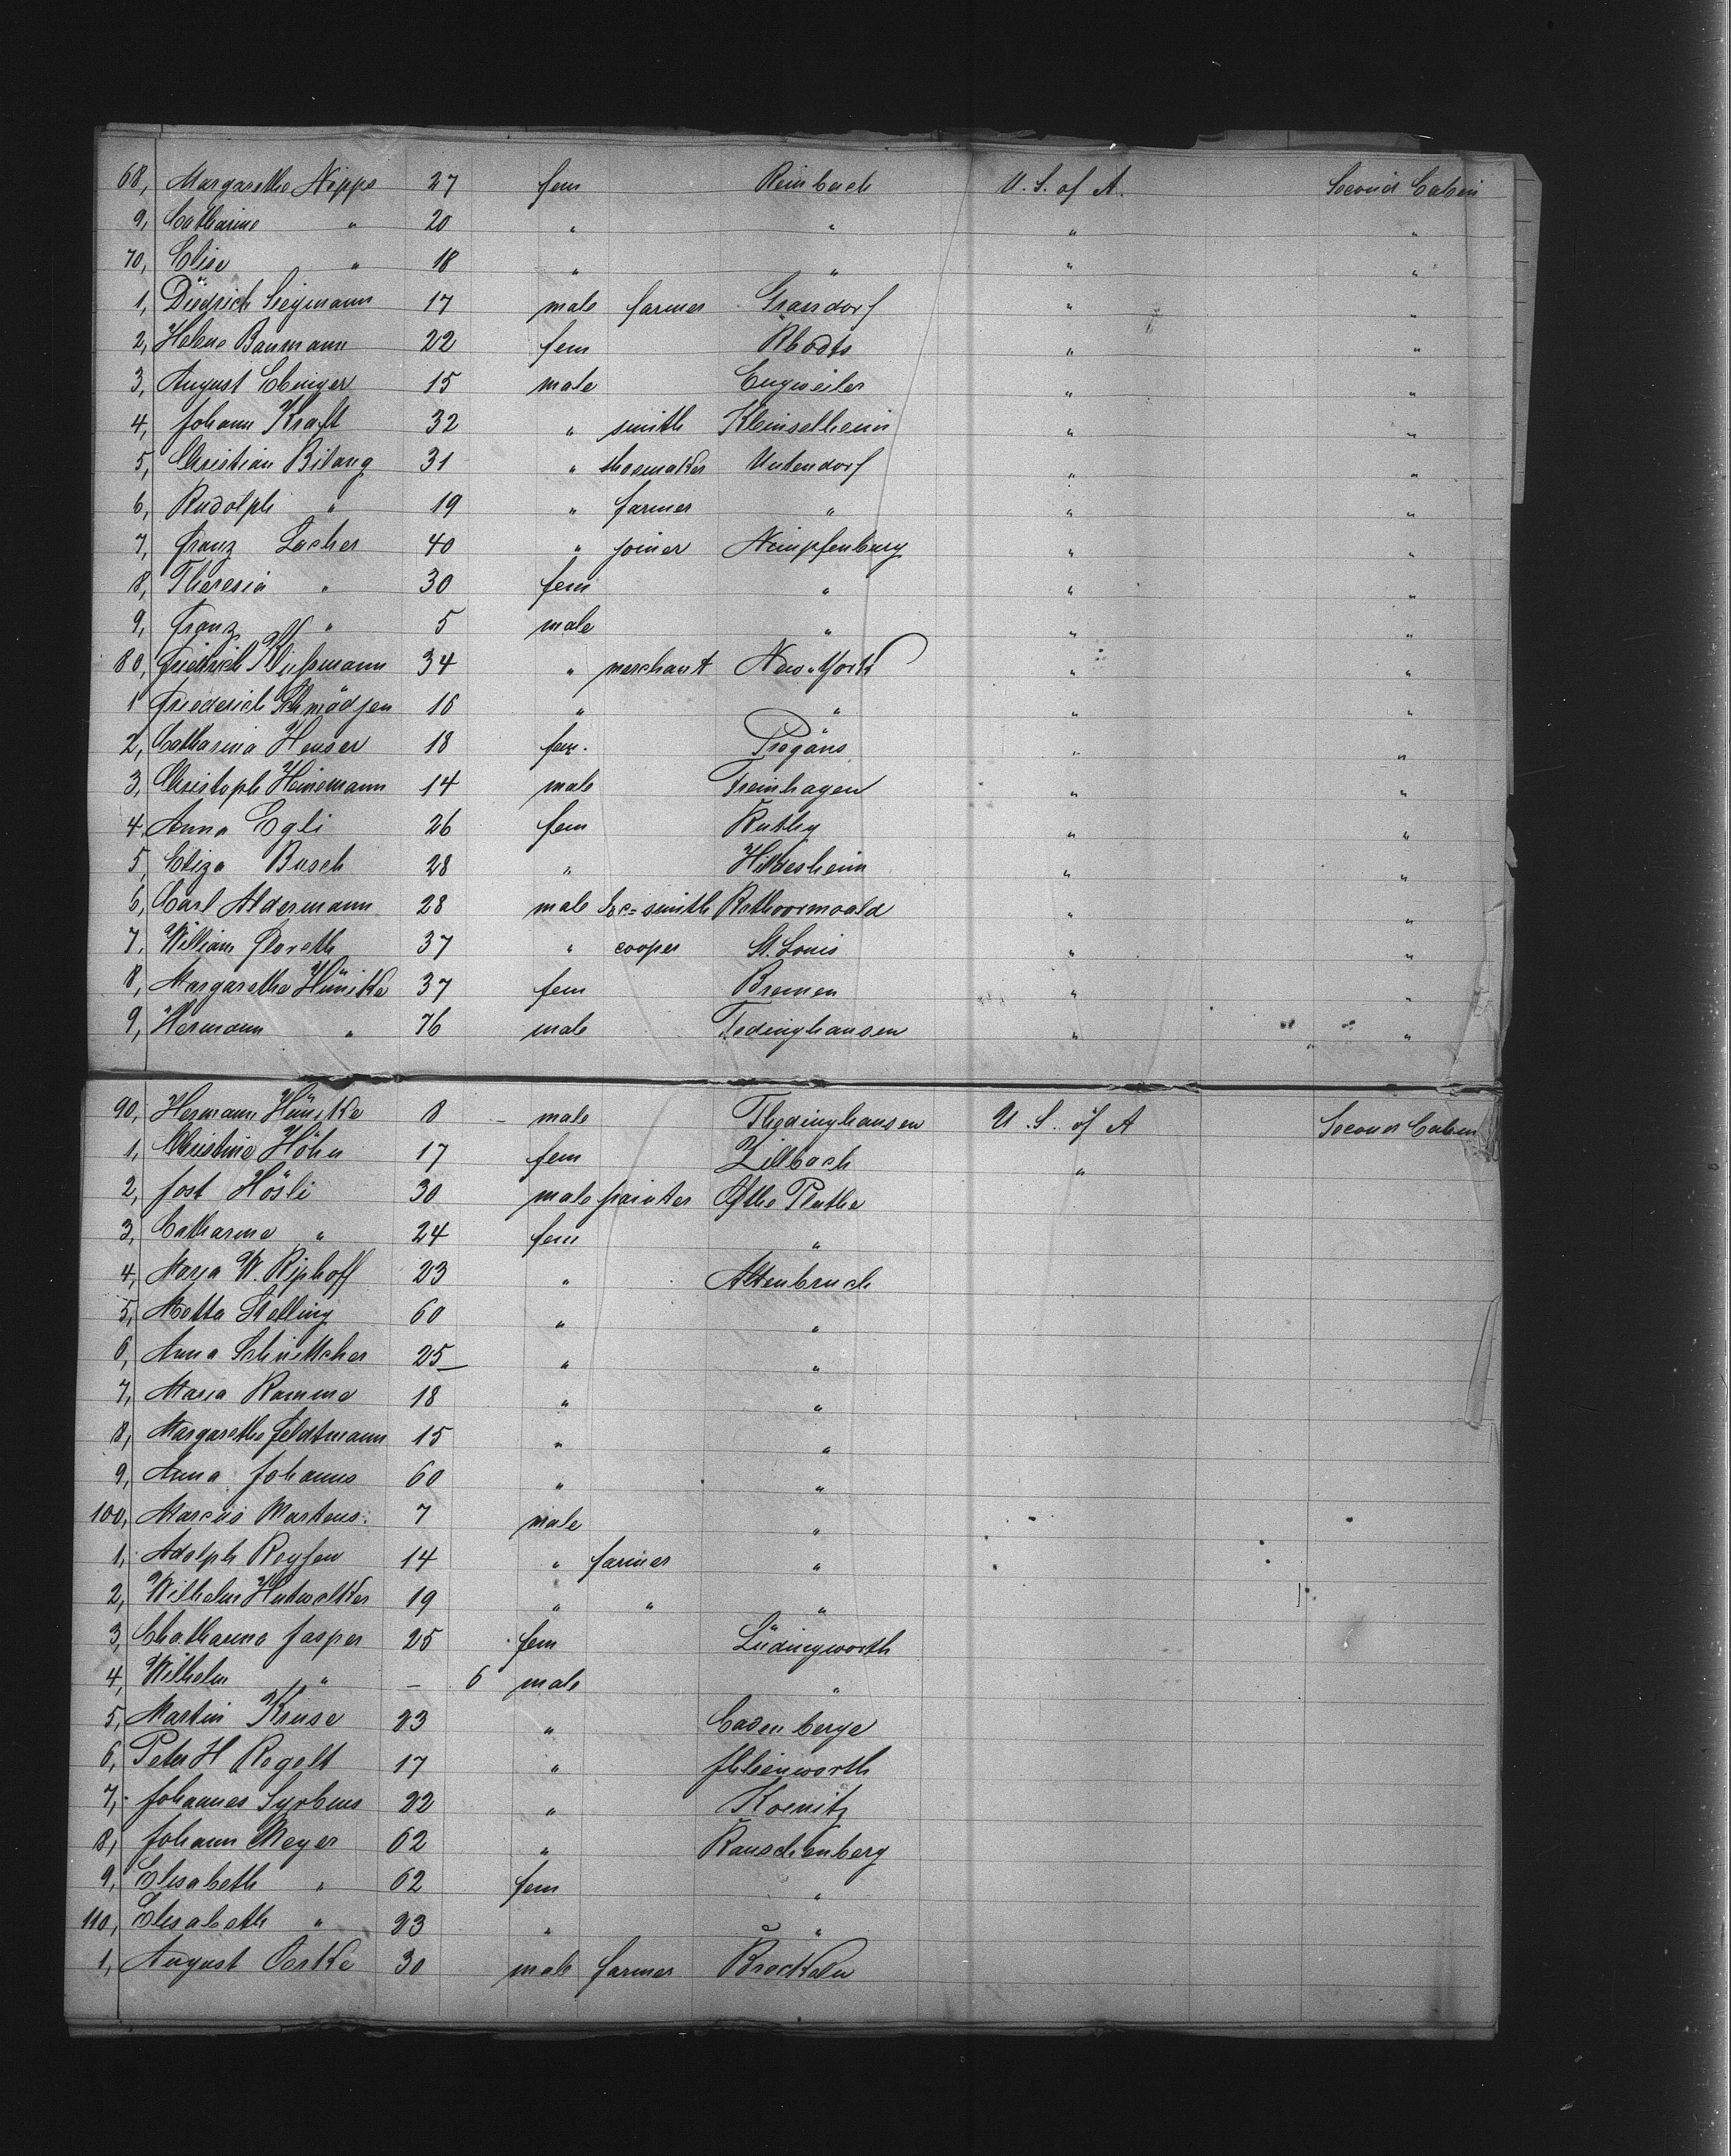 68, Margarethe Nippe 27 fem Reinbach U. S. of A. Second Cabin
9, Catharine " 20 " " " "
70, Elise " 18 " " " "
1, Diedrich Siegmann 17 male farmer Grasdorf " "
2, Helene Baumann 22 fem Rhodts " "
3, August Ebinger 15 male Engweiler " "
4, Johann Kraft 32 " smith Kleinselheim " "
5, Christian Bilang 31 " shoemaker Untendorf " "
6, Rudolph " 19 " farmer " " "
7, Franz Lacher 40 " joiner Nimpfenburg " "
8, Theresia " 30 fem " " "
9, Franz " 5 male " " "
80, Friedrich 34 " merchant New-York " "
1 Friederich 16 " " " "
2, Catharina Heuser 18 fem. " "
3, Christoph Heinemann 14 male Freinhagen " "
4, Anna Egli 26 fem " "
5, Eliza Busch 28 " Hildesheim " "
6, Carl Aldermann 28 male Loc=smith " "
7, William Floreth 37 " cooper St. Louis " "
8, Margarethe Hünike 37 fem Bremen " "
9, Hermann " 76 male Tedinghausen " "
90, Hermann Hünike 8 male Thedinghausen U. S. of A Second Cabin
1, Christine Höhn 17 fem Zillbach "
2, Jost Hösli 30 male painter
3, Catharine " 24 fem "
4, Maria W. Riphoff 23 " Altenbruch
5, Metta Stelling 60 " "
6, Anna 25 " "
7, Maria Ramme 18 " "
8, Margarethe Feldtmann 15 " "
9, Anna Johanns 60 " "
100, Marcus Martens. 7 male "
1, Adolph Reysen 14 " farmer "
2, Wilhelm Hutwalker 19 " " "
3, Chatharina Jasper 25 fem Lüdingworth
4, Wilhelm " – 6 male "
5, Martin Kruse 23 " Cadenberge
6, Peter H Rogelt 17 " Ihlienworth
7, Johannes Syrbius 22 " Koenitz
8, Johann Meyer 62 " Rauschenberg
9, Elisabeth " 62 fem "
110, Elisabeth " 23 " "
1, August Oestke 30 male farmer Brockeln